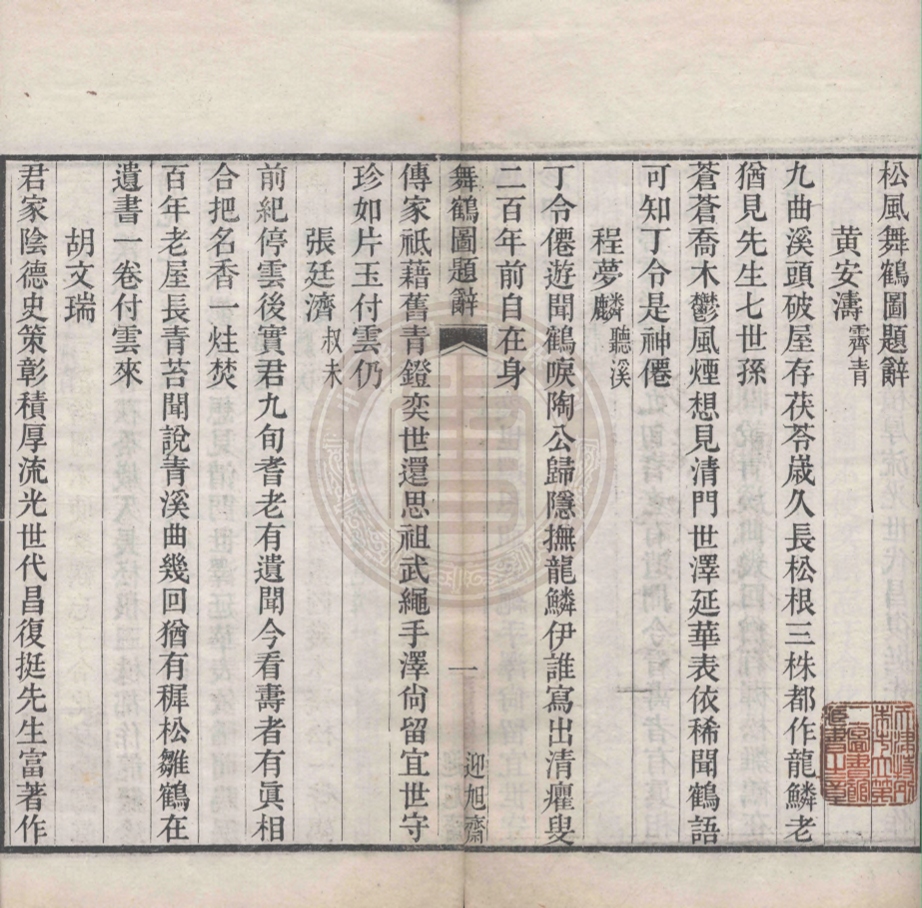 松風舞鶴圖題辭
黃安濤霽青
九曲溪頭破屋存茯苓嵗久長松根三株都作龍鱗老
猶見先生七世孫
蒼蒼喬木鬱風煙想見清門世澤延華表依稀聞鶴語
可知丁令是神僊
程夢麟聽溪
丁令僊遊聞鶴唳陶公歸隱撫龍鱗伊誰寫出清癯叟
二百年前自在身
舞鶴圖題辭 一 迎旭齋
傳家祇藉舊青鐙奕世還思祖武繩手澤尙留宜世守
珍如片玉付雲仍
張廷濟叔未
前紀停雲後實君九旬耆老有遺聞今看壽者有眞相
合把名香一炷焚
百年老屋長青苔聞說青溪曲幾回猶有稺松雛鶴在
遺書一卷付雲來
胡文瑞
君家陰德史策彰積厚流光世代昌復挺先生富著作